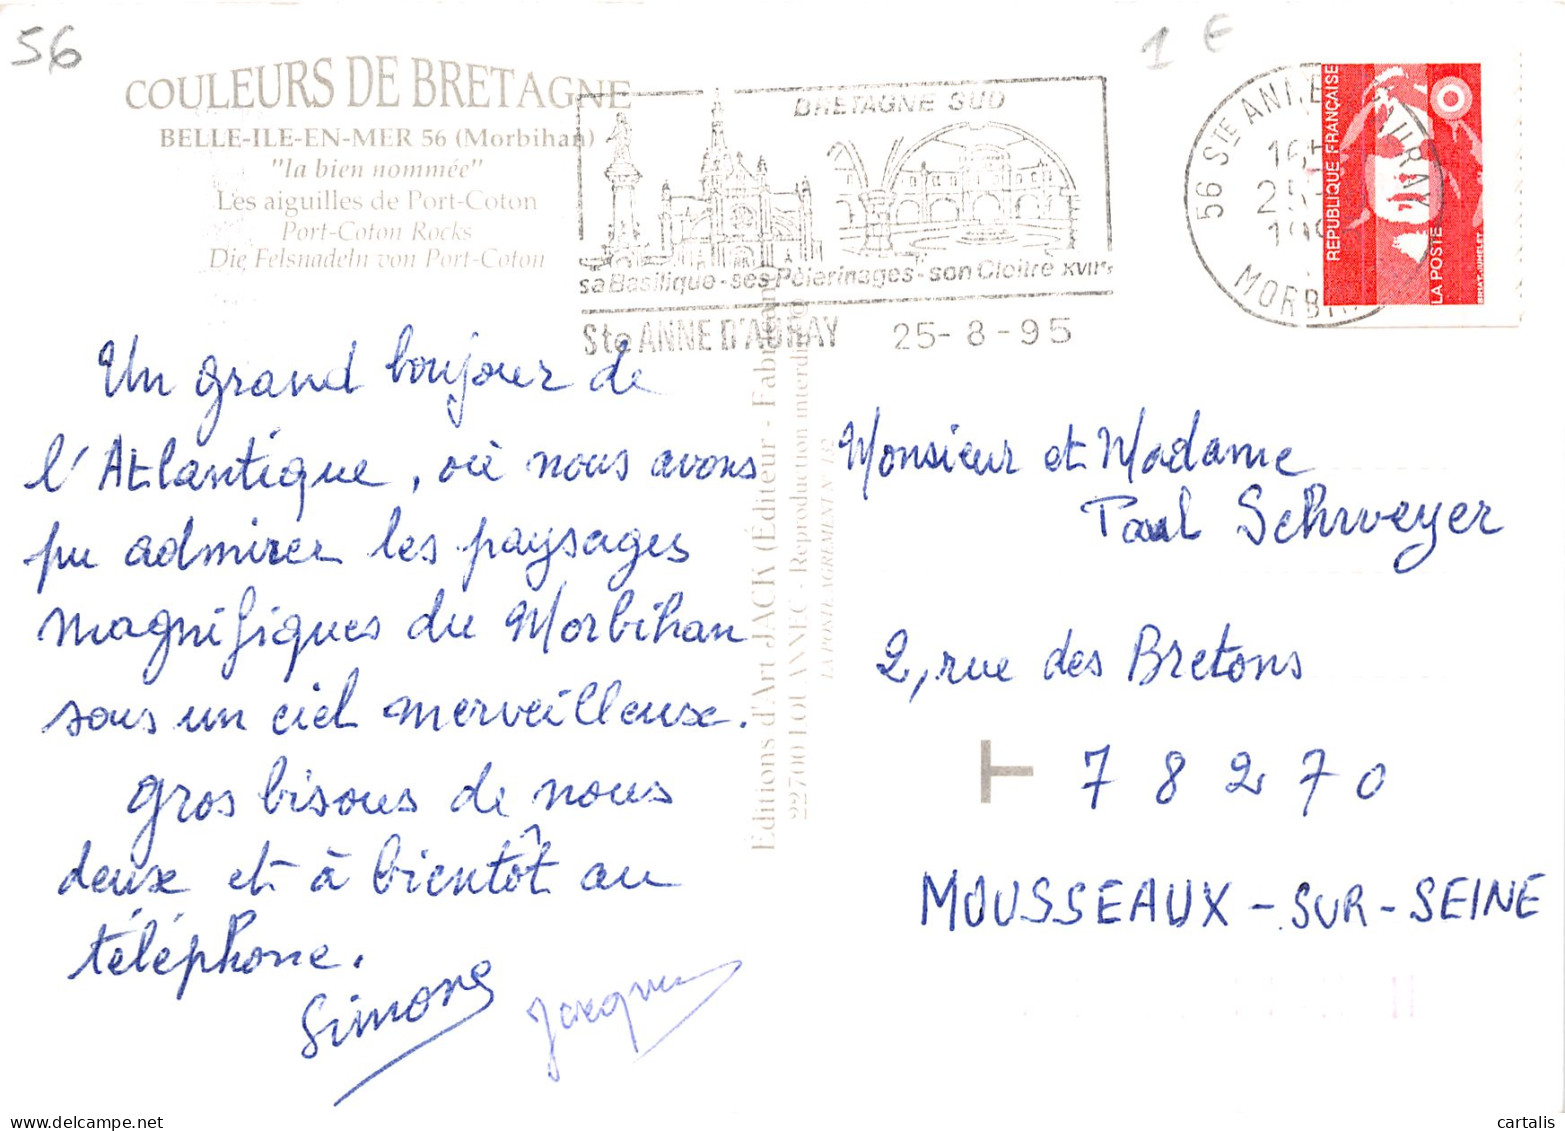 56
1 €
COULEURS DE BRETAGNE
BELLE-ILE-EN-MER 56 (Morbihan)
"la bien nommée"
Les aiguilles de Port-Coton
Port-Coton Rocks
Die Felsnadeln von Port-Coton
BRETAGNE SUD
sa Basilique - ses Pèlerinages - son Cloître XVIIe
Ste ANNE D'AURAY 25-8-95
56 STE ANNE D'AURAY
MORBIHAN
REPUBLIQUE FRANÇAISE
LA POSTE
Un grand bonjour de
l'Atlantique, où nous avons
pu admirer les paysages
magnifiques du Morbihan
sous un ciel merveilleux.
Gros bisous de nous
deux et à bientôt au
téléphone.
Simone
Jacques
Editions d'Art JACK (Éditeur - Fabricant)
22700 LOUANNEC - Reproduction interdite
LA POSTE AGREMENT N°
Monsieur et Madame
Paul Schrweyer
2, rue des Bretons
T 78270
MOUSSEAUX-SUR-SEINE
cartalis